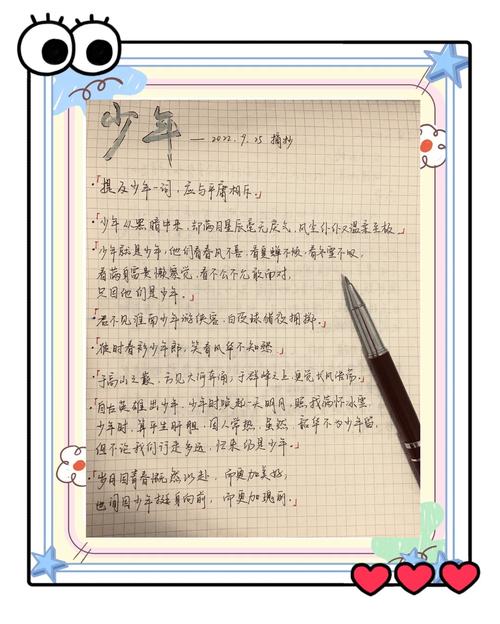 少年 — 2022.9.25 摘抄
·「提及少年一词，应与平庸相斥。」
·「少年从黑暗中来，却满目星辰毫无戾气，风尘仆仆又温柔至极。」
·「少年就是少年，他们看春风不喜，看夏蝉不烦，看冬雪不叹，
看满身富贵懒察觉，看不公不允敢面对，
只因他们是少年。」
·「君不见淮南少年游侠客，白日球猎夜拥掷。」
·「彼时看彩少年郎，笑看风华不知愁。」
·「于高山之巅，方见大河奔涌；于群峰之上，更觉长风浩荡。」
·「自古英雄出少年，少年时捧起一天明月，照我满怀冰雪，
少年时，算平生肝胆，因人常热，虽然，韶华不为少年留，
但不论我们行走多远，归来仍是少年。」
·「岁月因青春慨然以赴，而更加美好，
世间因少年挺身向前，而更加瑰丽。」